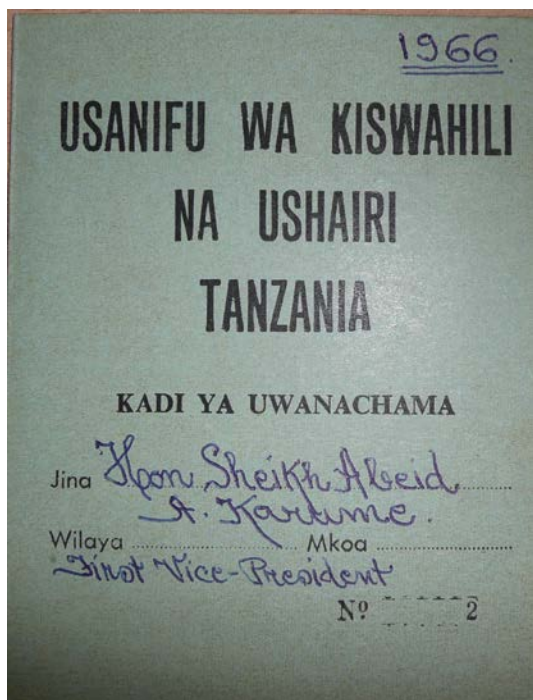 1966.
USANIFU WA KISWAHILI
NA USHAIRI
TANZANIA
KADI YA UWANACHAMA
Jina Hon. Sheikh Abeid
A. Karume.
Wilaya ........................ Mkoa ........................
First Vice-President
Nº 2